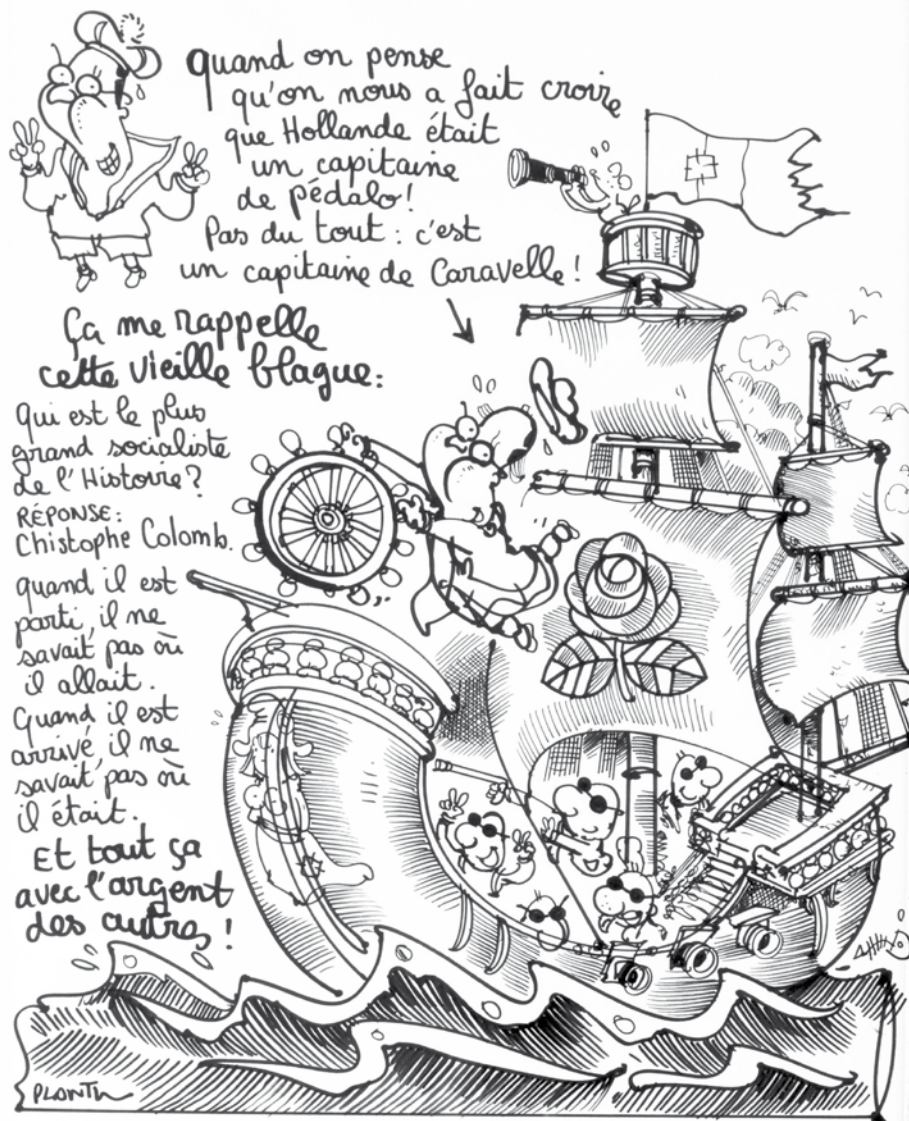 Quand on pense
qu'on nous a fait croire
que Hollande était
un capitaine
de pédalo!
Pas du tout : c'est
un capitaine de Caravelle !
Ça me rappelle
cette vieille blague:
Qui est le plus
grand socialiste
de l'Histoire?
RÉPONSE:
Chistophe Colomb.
quand il est
parti, il ne
savait pas où
il allait.
Quand il est
arrivé, il ne
savait pas où
il était.
Et tout ça
avec l'argent
des autres !
PLANTU